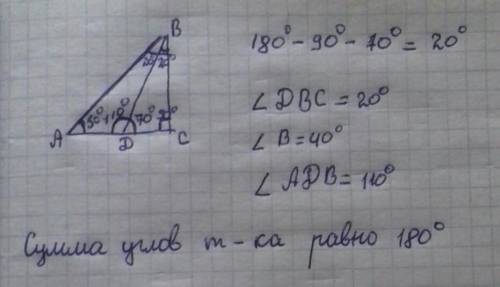 B
20° 20°
50° 110° 70°
A D C
180° - 90° - 70° = 20°
∠DBC = 20°
∠B = 40°
∠ADB = 110°
Сумма углов т-ка равно 180°